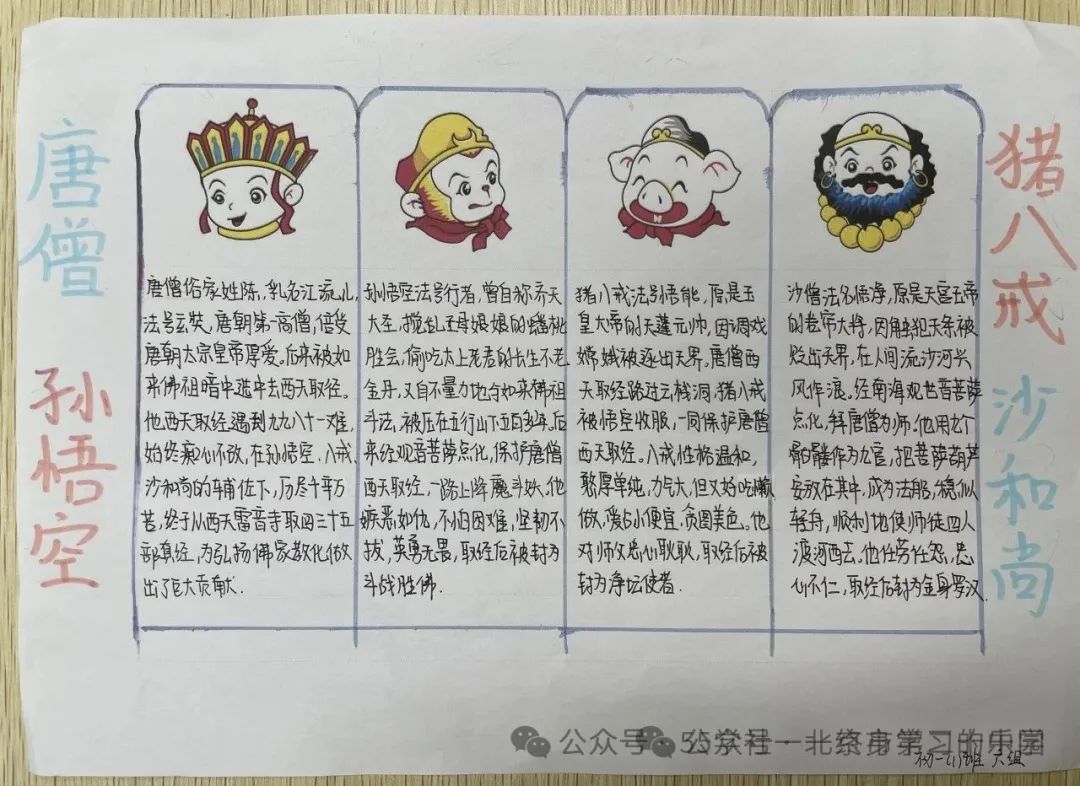 唐僧
孙悟空
唐僧俗家姓陈，乳名江流儿，
法号玄奘，唐朝第一高僧，倍受
唐朝太宗皇帝厚爱。后来被如
来佛祖暗中选中去西天取经。
他西天取经遇到九九八十一难，
始终痴心不改，在孙悟空、八戒、
沙和尚的辅佐下，历尽千辛万
苦，终于从西天雷音寺取回三十五
部真经，为弘扬佛家教化做
出了巨大贡献.
孙悟空法号行者，曾自称齐天
大圣，搅乱王母娘娘的蟠桃
胜会，偷吃太上老君的长生不老
金丹，又自不量力地与如来佛祖
斗法，被压在五行山下五百多年。后
来经观音菩萨点化，保护唐僧
西天取经，一路上降魔斗妖，他
嫉恶如仇，不怕困难，坚韧不
拔，英勇无畏，取经后被封为
斗战胜佛.
猪八戒法号悟能，原是玉
皇大帝的天蓬元帅，因调戏
嫦娥被逐出天界。唐僧西
天取经路过云栈洞，猪八戒
被悟空收服，一同保护唐僧
西天取经。八戒性格温和，
憨厚单纯，力气大，但又好吃懒
做，爱占小便宜，贪图美色。他
对师父忠心耿耿，取经后被
封为净坛使者.
沙僧法名悟净，原是天宫玉帝
的卷帘大将，因触犯天条被
贬出天界，在人间流沙河兴
风作浪。经南海观世音菩萨
点化，拜唐僧为师。他用九个
骷髅作为九宫，把菩萨葫芦
安放在其中，成为法船，稳似
轻舟，顺利地使师徒四人
渡河西去。他任劳任怨，忠
心不仁，取经后封为金身罗汉.
猪八戒
沙和尚
公众号
55学社一北
终身学习的乐园
初一 班 六组